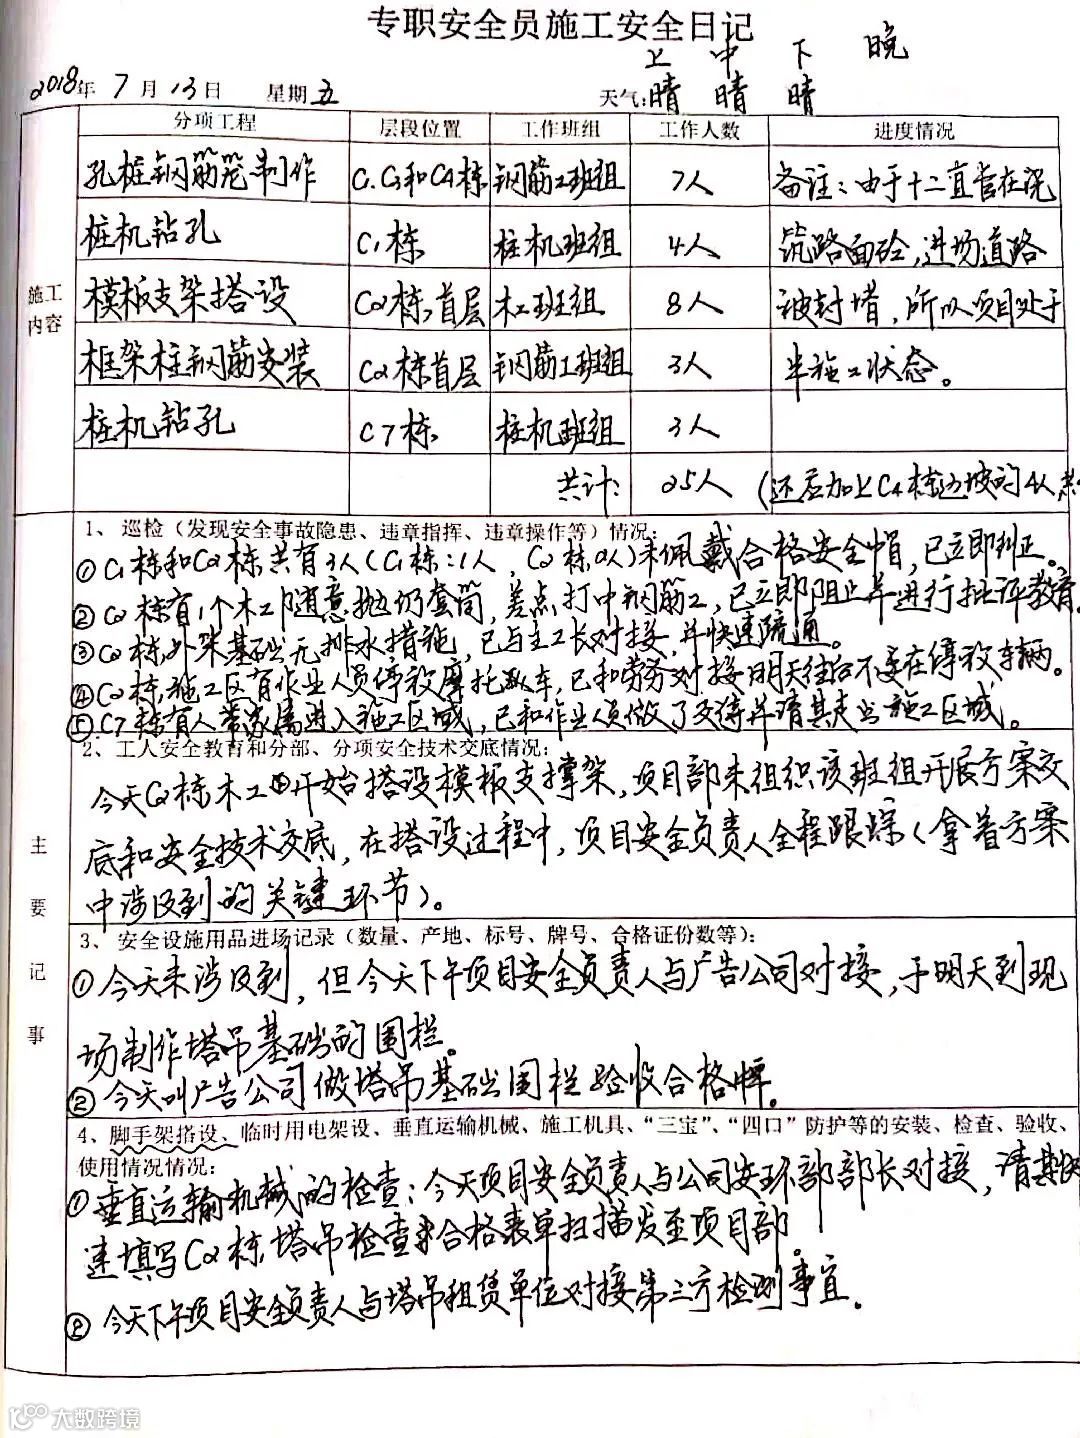 专职安全员施工安全日记
上 中 下 晚
2018年 7月 13日 星期五 天气:晴 晴 晴
分项工程 层段位置 工作班组 工作人数 进度情况
孔桩钢筋笼制作 C1.C3和C4栋 钢筋工班组 7人 备注：由于十二直管在浇
桩机钻孔 C1栋 桩机班组 4人 筑路面砼，进场道路
施工
内容
模板支架搭设 C2栋,首层 木工班组 8人 被封堵，所以项目处于
框架柱钢筋安装 C2栋首层 钢筋工班组 3人 半施工状态。
桩机钻孔 C7栋 桩机班组 3人
共计： 25人 (还应加上C4栋边坡的4人
1、巡检（发现安全事故隐患、违章指挥、违章操作等）情况：
①C1栋和C2栋共有3人（C1栋：1人，C2栋2人）未佩戴合格安全帽，已立即纠正。
②C2栋有1个木工随意抛扔套筒，差点打中钢筋工，已立即阻止并进行批评教育
③C2栋,外架基础无排水措施，已与主工长对接，并快速疏通。
④C2栋,施工区有作业人员停放摩托车，已和劳务对接明天往后不要在停放车辆。
⑤C7栋有人带家属进入施工区域，已和作业人员做了交待并请其走出施工区域。
2、工人安全教育和分部、分项安全技术交底情况：
今天C2栋木工开始搭设模板支撑架，项目部未组织该班组开展方案交
底和安全技术交底，在搭设过程中，项目安全负责人全程跟踪（拿着方案
中涉及到的关键环节）。
主
要
记
事
3、安全设施用品进场记录（数量、产地、标号、牌号、合格证份数等）：
①今天未涉及到，但今天下午项目安全负责人与广告公司对接，于明天到现
场制作塔吊基础的围栏。
②今天叫广告公司做塔吊基础围栏验收合格牌。
4、脚手架搭设、临时用电架设、垂直运输机械、施工机具、“三宝”、“四口”防护等的安装、检查、验收、
使用情况情况：
①垂直运输机械的检查：今天项目安全负责人与公司安环部部长对接，请其快
速填写C2栋,塔吊检查合格表单扫描发至项目部。
②今天下午项目安全负责人与塔吊租赁单位对接第三方检测事宜。
大数跨境